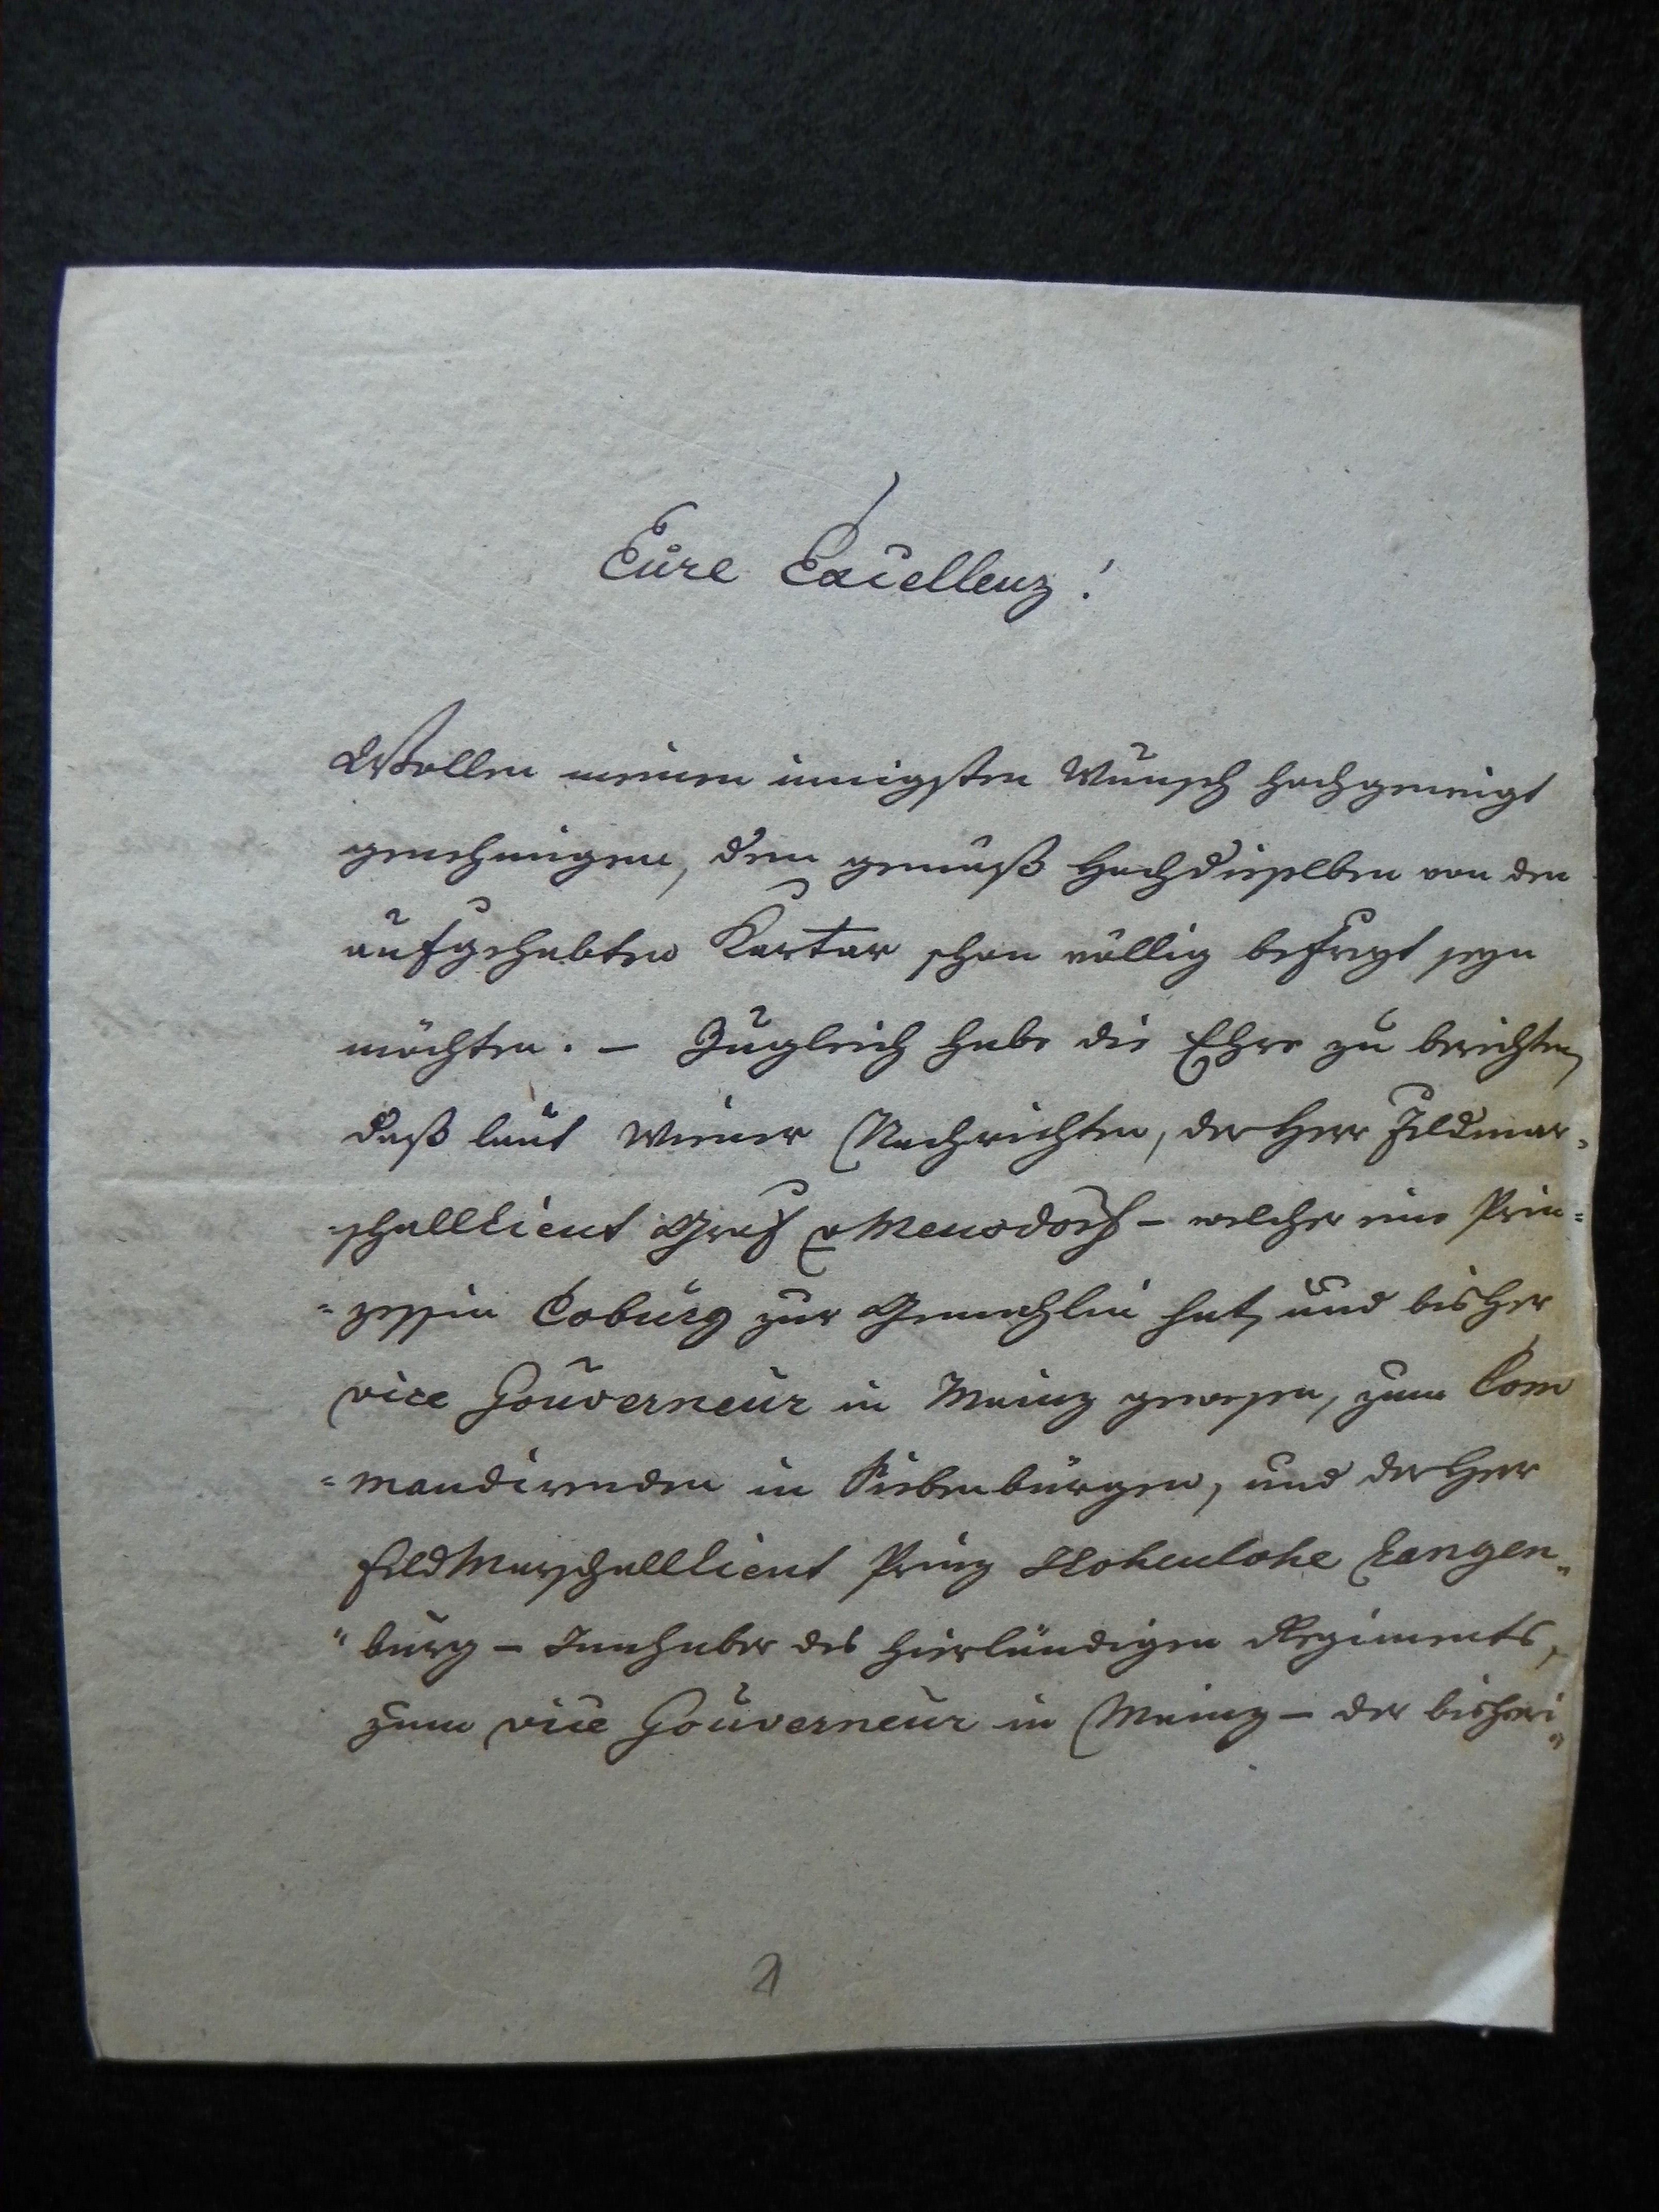 Eure Excellenz!
Wollen meinen innigsten Wunsch hochgeneigt
genehmigen, dem gemäß Hochdieselben von den
aufgehabten Kartar schon völlig befreyt seyn
möchten. – Zugleich habe die Ehre zu berichten,
daß laut Wiener Nachrichten, der Herr Feldmar=
schalllieut Graf v Mensdorf – welcher eine Prin=
=zessin Coburg zur Gemahlin hat, und bisher
vice Gouverneur in Mainz gewesen, zum Com
=mandirenden in Siebenbürgen, und der Herr
FeldMarschalllieut Prinz Hohenlohe Langen„
„burg – Innhaber des hierländigen Regiments,
zum vice Gouverneur in Mainz – der bisheri„